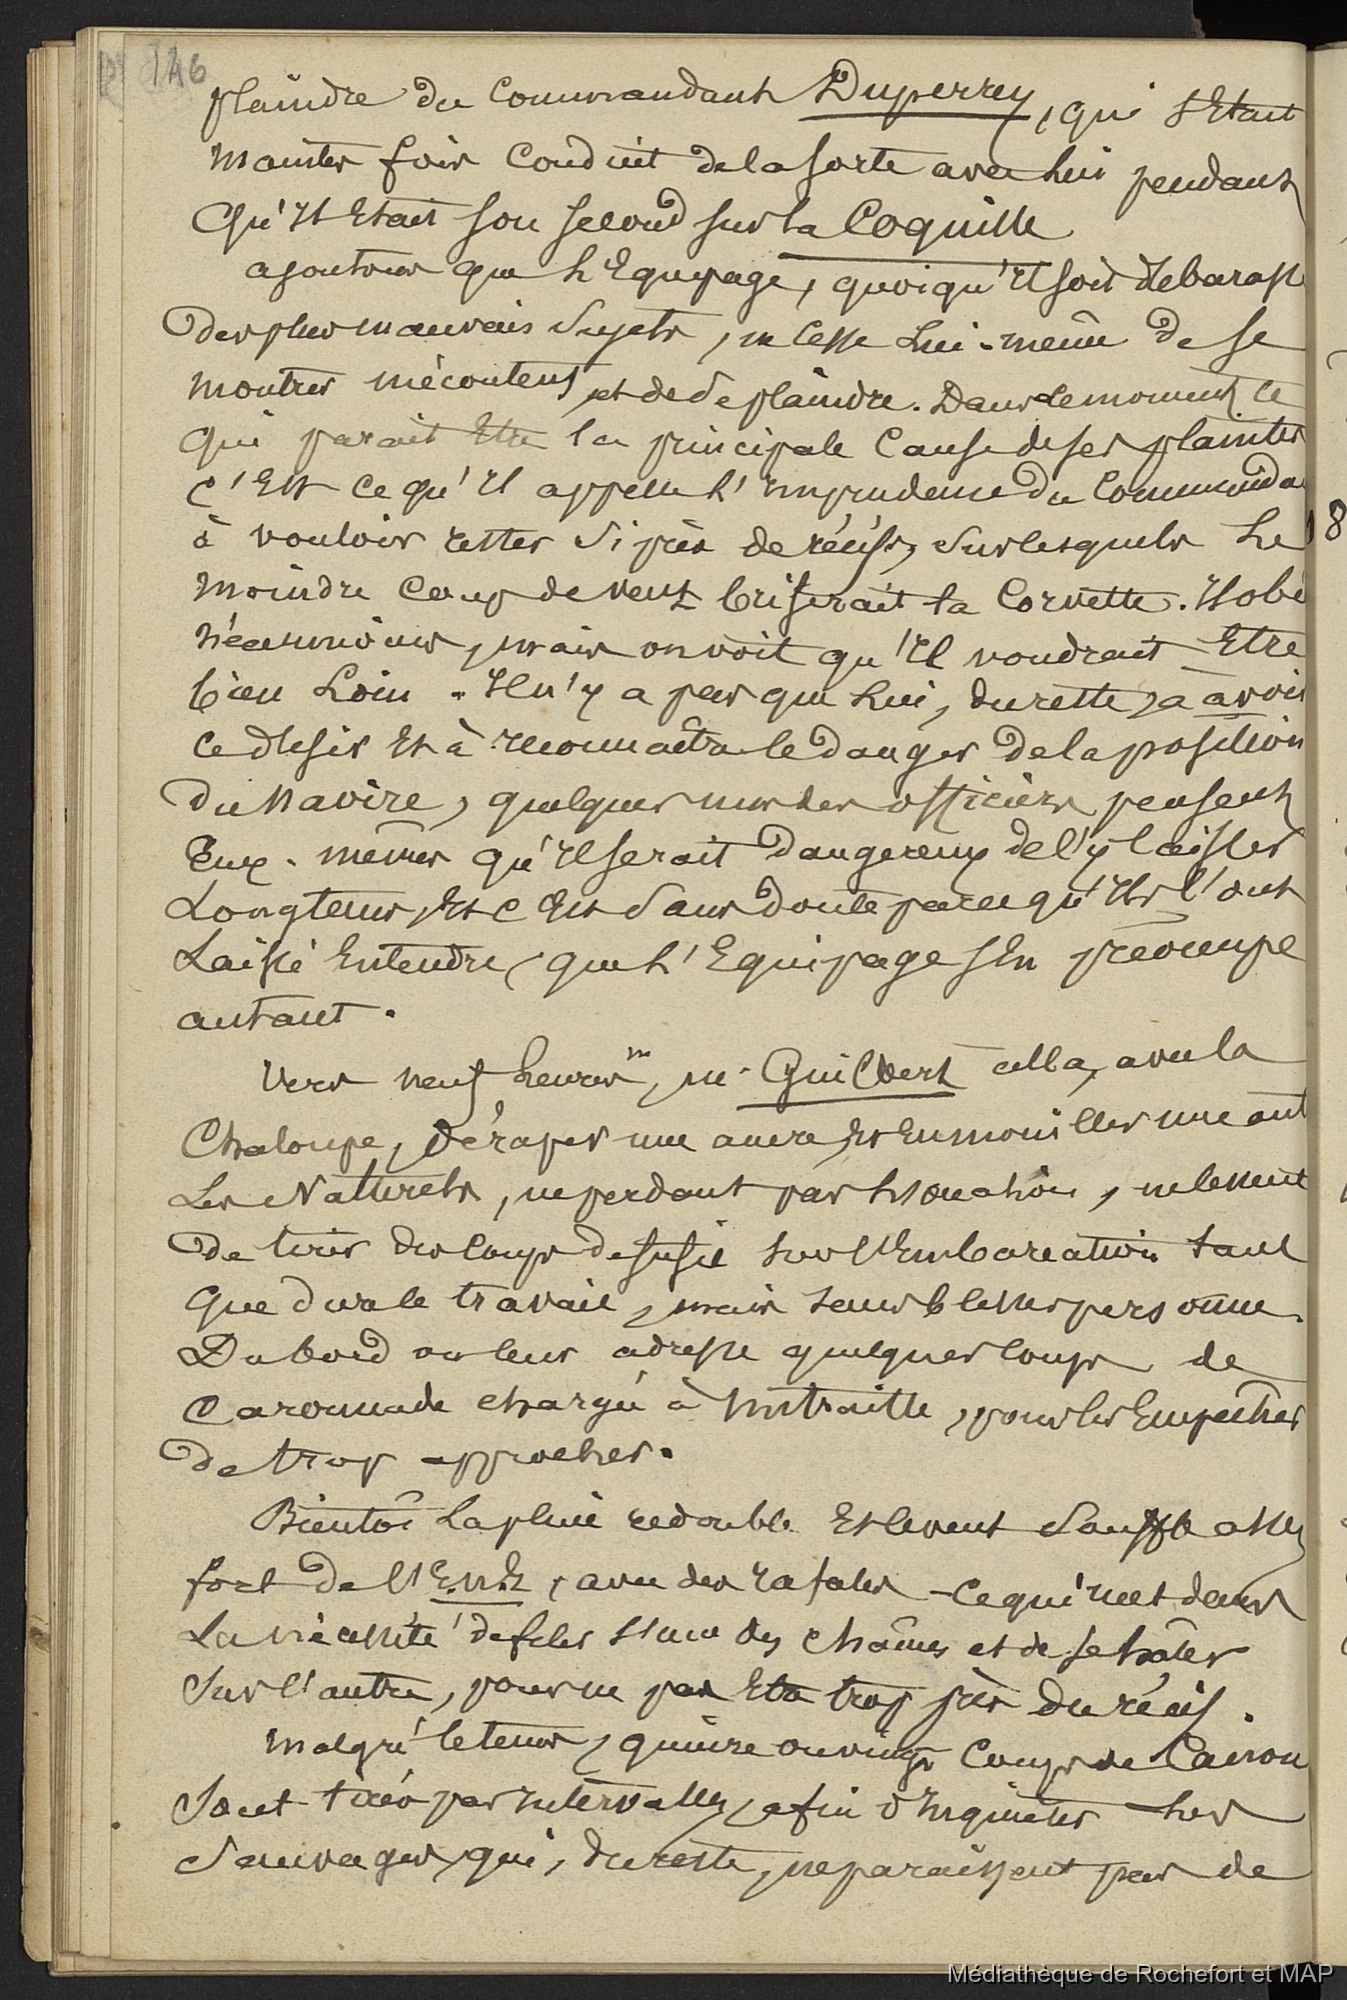 146
plaindre du Commandant Duperrey, qui s'Etait
maintes fois Conduit de la sorte avec lui pendant
Qu'Il Etait son second sur la Coquille
ajoutons que l'Equipage, quoiqu'Il soit débarassé
des plus mauvais sujets, ne Cesse Lui-même de se
montrer mécontent et de se plaindre. Dans ce moment, Ce
Qui parait Etre la principale Cause de ses plaintes
C'Est Ce qu'Il appelle l'imprudence du Commanda
à vouloir rester si près de récifs, sur lesquels Le
moindre Coup de vent briserait la Corvette. Il obé
néanmoins, mais on voit qu'Il voudrait Etre
bien Loin. Il n'y a pas que Lui, du reste, à avoir
ce désir Et à reconnaître le danger de la position
du navire, quelques uns des officiers pensent
Eux-mêmes qu'Il serait dangereux de l'y laisser
Longtems, Et C'Est sans doute parcequ'Ils l'ont
Laissé Entendre, que l'Equipage s'En préoccupe
autant.
Vers neuf heures m, M. Guilbert alla, avec la
Chaloupe, déraper une ancre, Et En mouiller une aut
Les Naturels, ne perdant pas l'occasion, ne cessent
de tirer des Coups de fusil sur l'Embarcation tant
Que dura le travail, mais sans blesser personne.
Du bord on leur adresse quelques Coups de
Caronnade chargée à mitraille, pour les Empêcher
de trop approcher.
Bientôt La pluie redouble Et le vent souffle assez
fort de l'E.N.E, avec des rafales - Ce qui met dans
La nécessité de filer l'une des chaînes et de se hâler
Sur l'autre, pour ne pas Etre trop près du récif.
Malgré le tems, quinze ou vingt Coups de Canon
Sont tirés par Intervalles, afin d'Inquiéter Les
Sauvages, qui, du reste, ne paraissent pas de
18
Médiathèque de Rochefort et MAP